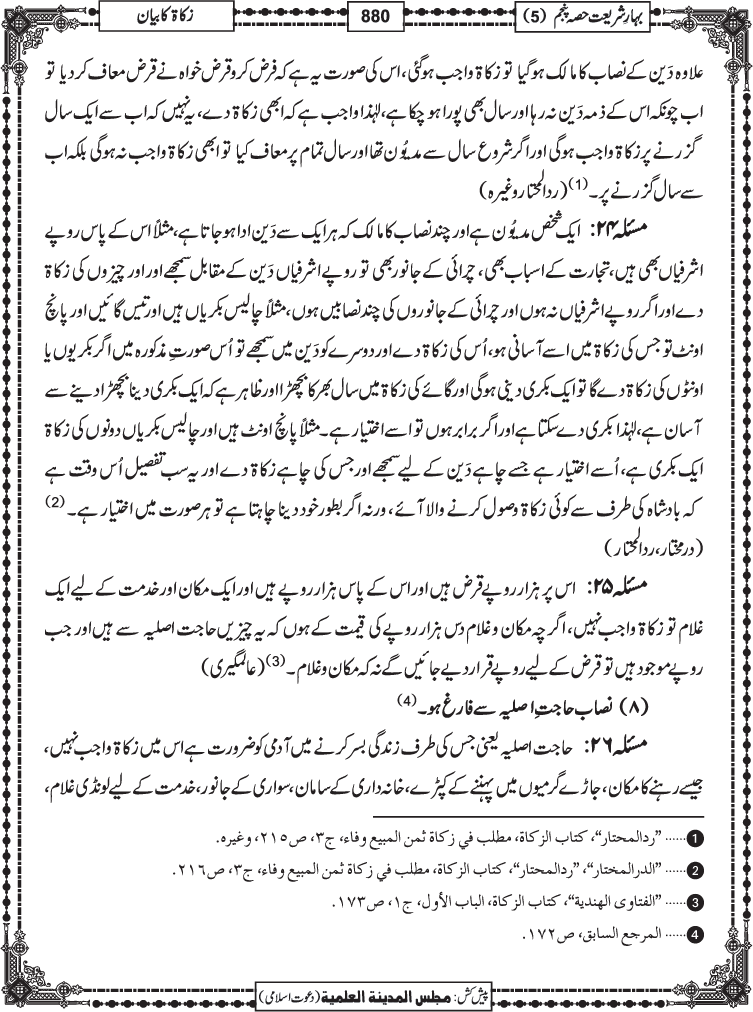 بہارِ شریعت حصہ پنجم (5)
880
زکاۃ کا بیان
علاوہ دَین کے نصاب کا مالک ہوگیا تو زکاۃ واجب ہوگئی، اس کی صورت یہ ہے کہ فرض کرو قرض خواہ نے قرض معاف کر دیا تو
اب چونکہ اس کے ذمہ دَین نہ رہا اور سال بھی پورا ہو چکا ہے، لہٰذا واجب ہے کہ ابھی زکاۃ دے، یہ نہیں کہ اب سے ایک سال
گزرنے پر زکاۃ واجب ہوگی اور اگر شروع سال سے مدیُون تھا اور سال تمام پر معاف کیا تو ابھی زکاۃ واجب نہ ہوگی بلکہ اب
سے سال گزرنے پر۔ (1) (ردالمحتار وغیرہ)
مسئلہ ۲۴: ایک شخص مدیُون ہے اور چند نصاب کا مالک کہ ہر ایک سے دَین ادا ہو جاتا ہے، مثلاً اس کے پاس روپے
اشرفیاں بھی ہیں، تجارت کے اسباب بھی، چرائی کے جانور بھی تو روپے اشرفیاں دَین کے مقابل سمجھے اور اور چیزوں کی زکاۃ
دے اور اگر روپے اشرفیاں نہ ہوں اور چرائی کے جانوروں کی چند نصابیں ہوں، مثلاً چالیس بکریاں ہیں اور تیس گائیں اور پانچ
اونٹ تو جس کی زکاۃ میں اسے آسانی ہو، اُس کی زکاۃ دے اور دوسرے کو دَین میں سمجھے تو اُس صورتِ مذکورہ میں اگر بکریوں یا
اونٹوں کی زکاۃ دے گا تو ایک بکری دینی ہوگی اور گائے کی زکاۃ میں سال بھر کا بچھڑا اور ظاہر ہے کہ ایک بکری دینا بچھڑا دینے سے
آسان ہے، لہٰذا بکری دے سکتا ہے اور اگر برابر ہوں تو اسے اختیار ہے۔ مثلاً پانچ اونٹ ہیں اور چالیس بکریاں دونوں کی زکاۃ
ایک بکری ہے، اُسے اختیار ہے جسے چاہے دَین کے لیے سمجھے اور جس کی چاہے زکاۃ دے اور یہ سب تفصیل اُس وقت ہے
کہ بادشاہ کی طرف سے کوئی زکاۃ وصول کرنے والا آئے، ورنہ اگر بطور خود دینا چاہتا ہے تو ہر صورت میں اختیار ہے۔ (2)
(درمختار، ردالمحتار)
مسئلہ ۲۵: اس پر ہزار روپے قرض ہیں اور اس کے پاس ہزار روپے ہیں اور ایک مکان اور خدمت کے لیے ایک
غلام تو زکاۃ واجب نہیں، اگرچہ مکان و غلام دس ہزار روپے کی قیمت کے ہوں کہ یہ چیزیں حاجت اصلیہ سے ہیں اور جب
روپے موجود ہیں تو قرض کے لیے روپے قرار دیے جائیں گے نہ کہ مکان و غلام۔ (3) (عالمگیری)
(۸) نصاب حاجتِ اصلیہ سے فارغ ہو۔ (4)
مسئلہ ۲۶: حاجت اصلیہ یعنی جس کی طرف زندگی بسر کرنے میں آدمی کو ضرورت ہے اس میں زکاۃ واجب نہیں،
جیسے رہنے کا مکان، جاڑے گرمیوں میں پہننے کے کپڑے، خانہ داری کے سامان، سواری کے جانور، خدمت کے لیے لونڈی غلام،
1 ...... ”ردالمحتار“، کتاب الزکاۃ، مطلب في زکاة ثمن المبیع وفاء، ج۳، ص۲۱۵، وغیرہ.
2 ...... ”الدرالمختار“، ”ردالمحتار“، کتاب الزکاۃ، مطلب في زکاة ثمن المبیع وفاء، ج۳، ص۲۱۶.
3 ...... ”الفتاوی الهندیة“، کتاب الزکاۃ، الباب الأول، ج۱، ص۱۷۳.
4 ...... المرجع السابق، ص۱۷۲.
پیش کش: مجلس المدینة العلمیة (دعوت اسلامی)